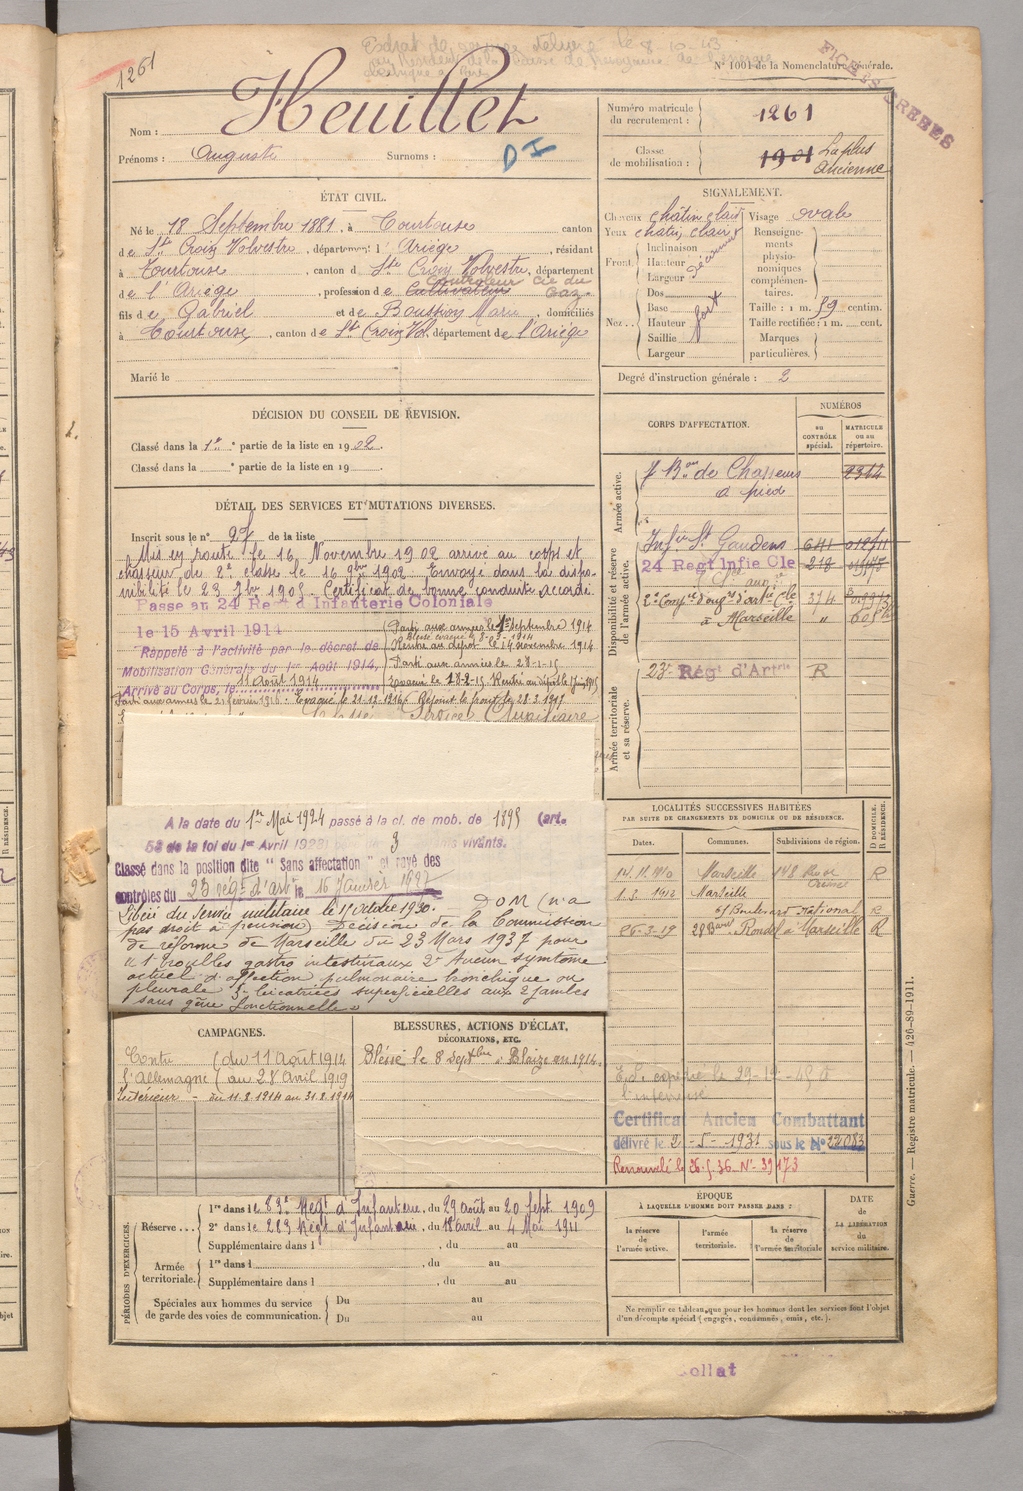 1261
Extrait de service délivré le 8-10-43
N° 1001 de la Nomenclature générale.
Heuillet
Nom :
Prénoms : Auguste Surnoms :
D I
Numéro matricule du recrutement : 1261
Classe de mobilisation : 1901 La plus Ancienne
ÉTAT CIVIL.
Né le 18 Septembre 1881, à Tourtouse canton
de Ste Croix Volvestre, département de l'Ariège, résidant
à Tourtouse, canton de Ste Croix Volvestre, département
Contrôleur Cie du Gaz
de l'Ariège, profession de Cultivateur
fils de Gabriel et de Marie, domiciliés
à Tourtouse, canton de Ste Croix Vol. département de l'Ariège
Marié le
SIGNALEMENT.
Cheveux châtin clair Visage ovale
Yeux chatin clair
Front. Inclinaison Hauteur Largeur
Nez... Dos Base Hauteur Saillie Largeur fort
Renseignements physionomiques complémentaires.
Taille : 1 m. 59 centim.
Taille rectifiée : 1 m. cent.
Marques particulières.
Degré d'instruction générale : 2
DÉCISION DU CONSEIL DE REVISION.
Classé dans la 1re partie de la liste en 1902.
Classé dans la e partie de la liste en 19
DÉTAIL DES SERVICES ET MUTATIONS DIVERSES.
Inscrit sous le n° 27 de la liste
Mis en route le 16 Novembre 1902 arrivé au corps et
chasseur de 2e classe le 16 9bre 1902. Envoyé dans la dispo-
nibilité le 23 7bre 1905. Certificat de bonne conduite accordé.
Passé au 24 Regt d'Infanterie Coloniale
le 15 Avril 1914
Rappelé à l'activité par le décret de
Mobilisation Générale du 1er Août 1914,
Arrivé au Corps, le 11 août 1914
Parti aux armées le septembre 1914
Blessé évacué le 8-9-1914
Rentré au dépôt le 14 novembre 1914
Parti aux armées le 28-1-15
Evacué le 18-2-15 Rentré au dépôt le
Parti aux armées le 21 février 1916. Evacué le 21-12-1916. Rejoint le front le 28.3.1917
Service Auxiliaire
A la date du 1er Mai 1924 passé à la cl. de mob. de 1895 (art.
58 de la loi du 1er Avril 1923) 3 vivants.
Classé dans la position dite " Sans affectation " et rayé des
contrôles du 23 régt d'artie le 16 Janvier 1927
Libéré du service militaire le 1 Octobre 1930. DOM (n'a
pas droit à pension) Décision de la Commission
de réforme de Marseille du 23 Mars 1937 pour
« 1° Troubles gastro intestinaux 2° Aucun symtôme
actuel d'affection pulmonaire bronchique ou
pleurale 3° Cicatrices superficielles aux 2 jambes
sans gêne fonctionnelle »
CORPS D'AFFECTATION.
NUMÉROS
au CONTRÔLE spécial.
MATRICULE ou au répertoire.
Armée active.
7 Bon de Chasseurs à pied 2314
Disponibilité et réserve de l'armée active.
Infie St Gaudens 641
24 Regt Infie Cle 218
2e Compie d'ougers d'artie Cle 374
à Marseille "
Armée territoriale et sa réserve.
23e Régt d'Artrie R
LOCALITÉS SUCCESSIVES HABITÉES
PAR SUITE DE CHANGEMENTS DE DOMICILE OU DE RÉSIDENCE.
Dates. Communes. Subdivisions de région. D DOMICILE. R RÉSIDENCE.
Marseille 148 Rue de R
1.3.1912 Marseille
61 Boulevard National R
26-3-19 28 Bard Rondel à Marseille R
le 29-12-45 à
l'intéressé
Certificat Ancien Combattant
délivré le 2-5-1931 sous le N° 22083
Renouvelé le 26.5.36 N° 39173
CAMPAGNES.
Contre l'Allemagne (du 11 Août 1914
au 28 Avril 1919
Intérieur - du 11.8.1914 au 31.8.1914
BLESSURES, ACTIONS D'ÉCLAT,
DÉCORATIONS, ETC.
Blessé le 8 Septbre à Blaize 1914.
PÉRIODES D'EXERCICES.
Réserve...
1re dans le 283e Regt d'Infanterie, du 29 août au 20 Sept. 1909
2e dans le 283 Régt d'Infanterie, du 18 avril au 4 Mai 1911
Supplémentaire dans l , du au
Armée territoriale.
1re dans l , du au
Supplémentaire dans l , du au
Spéciales aux hommes du service
de garde des voies de communication.
Du au
Du au
ÉPOQUE
À LAQUELLE L'HOMME DOIT PASSER DANS :
la réserve de l'armée active.
l'armée territoriale.
la réserve de l'armée territoriale
DATE DE LA LIBÉRATION DU service militaire.
Ne remplir ce tableau que pour les hommes dont les services font l'objet
d'un décompte spécial (engagés, condamnés, omis, etc.).
Guerre. — Registre matricule. — 426-89-1911.